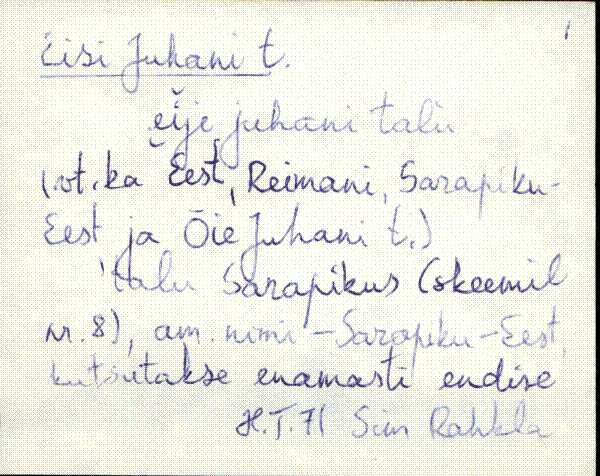 1
Eisi Juhani t.
eije juhani talu
(.vt. ka Eest, Reimani, Sarapiku-
Eest ja Öie Juhani t.)
talu Sarapikus (skeemil
nr. 8), am. nimi – Sarapiku-Eest,
kutsutakse enamasti endise
H.T. 71 Siim Rahkla